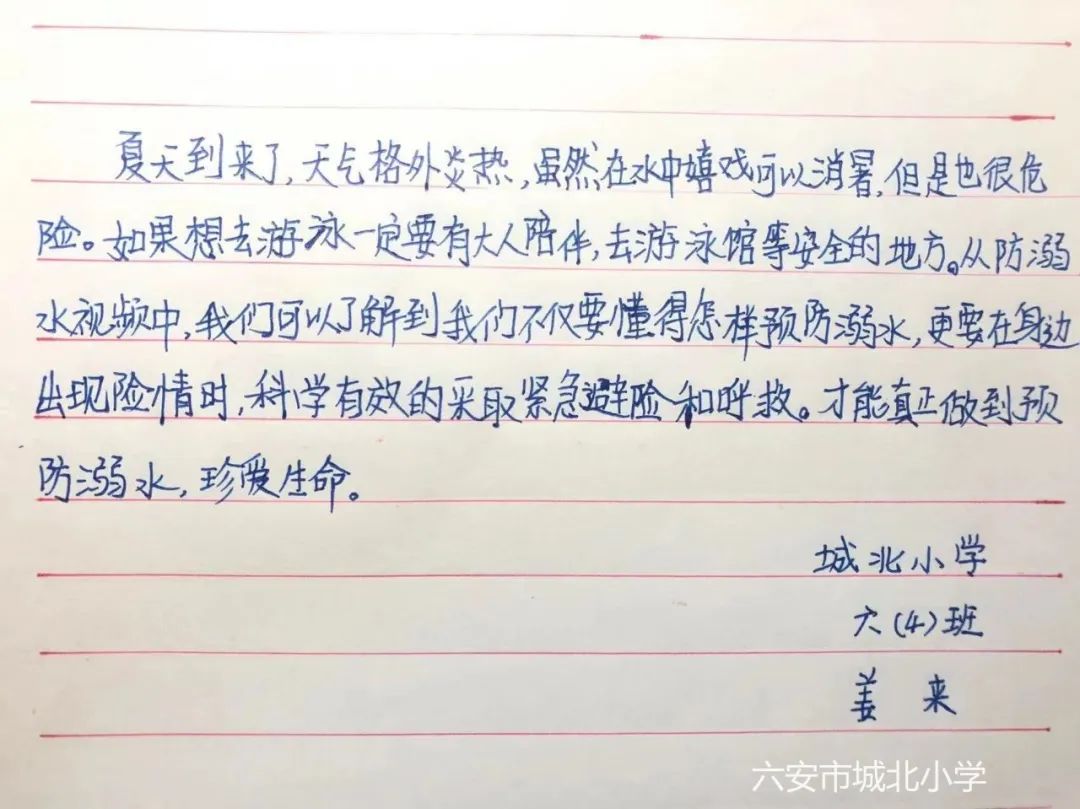 夏天到来了,天气格外炎热,虽然在水中嬉戏可以消暑,但是也很危
险。如果想去游泳一定要有大人陪伴,去游泳馆等安全的地方。从防溺
水视频中,我们可以了解到我们不仅要懂得怎样预防溺水,更要在身边
出现险情时,科学有效的采取紧急避险和呼救。才能真正做到预
防溺水,珍爱生命。
城北小学
六(4)班
姜来
六安市城北小学